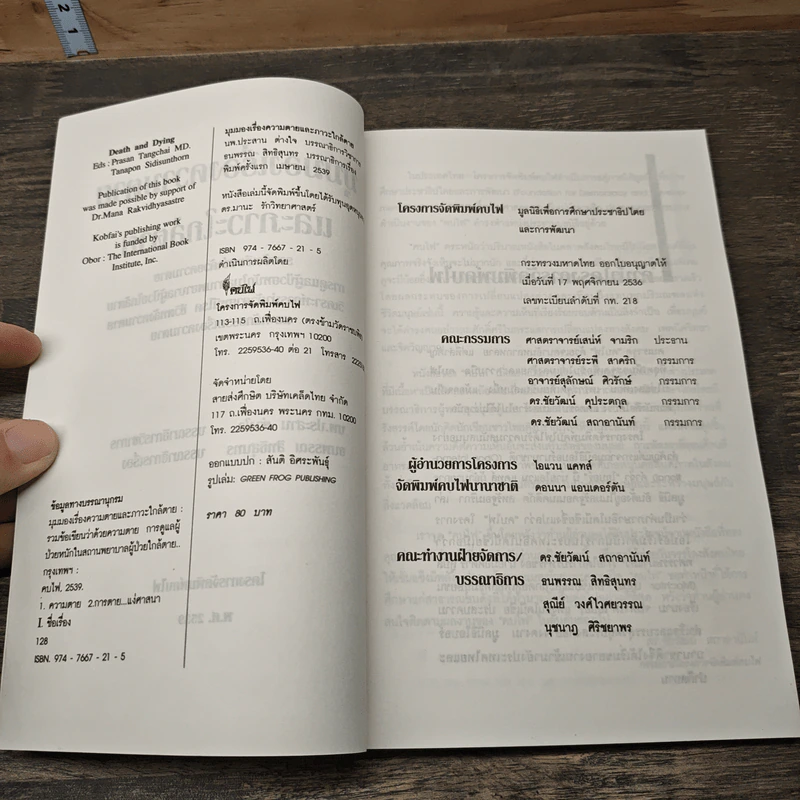 Death and Dying
Eds : Prasan Tangchai MD.
Tanapon Sidisunthorn
Publication of this book
was made possible by support of
Dr.Mana Rakvidhyasastre
Kobfai's publishing work
is funded by
Obor : The International Book
Institute, Inc.
ข้อมูลทางบรรณานุกรม
มุมมองเรื่องความตายและภาวะใกล้ตาย :
รวมข้อเขียนว่าด้วยความตาย การดูแลผู้
ป่วยหนักในสถานพยาบาลผู้ป่วยใกล้ตาย..
กรุงเทพฯ :
คบไฟ, 2539.
1. ความตาย 2.การตาย...แง่ศาสนา
I. ชื่อเรื่อง
128
ISBN. 974 - 7667 - 21 - 5
มุมมองเรื่องความตายและภาวะใกล้ตาย
นพ.ประสาน ต่างใจ บรรณาธิการวิชาการ
ธนพรรณ สิทธิสุนทร บรรณาธิการเรื่อง
พิมพ์ครั้งแรก เมษายน 2539
หนังสือเล่มนี้จัดพิมพ์ขึ้นโดยได้รับทุน
ดร.มานะ รักวิทยาศาสตร์
ISBN 974 - 7667 - 21 - 5
ดำเนินการผลิตโดย
คบไฟ
โครงการจัดพิมพ์คบไฟ
113-115 ถ.เฟื่องนคร (ตรงข้ามวัดราชบพิธ)
เขตพระนคร กรุงเทพฯ 10200
โทร. 2259536-40 ต่อ 21 โทรสาร
จัดจำหน่ายโดย
สายส่งศึกษิต บริษัทเคล็ดไทย จำกัด
117 ถ.เฟื่องนคร พระนคร กทม. 10200
โทร. 2259536-40
ออกแบบปก : สันติ อิศระพันธุ์
รูปเล่ม: GREEN FROG PUBLISHING
ราคา 80 บาท
โครงการจัดพิมพ์คบไฟ มูลนิธิเพื่อการศึกษาประชาธิปไตย
และการพัฒนา
กระทรวงมหาดไทย ออกใบอนุญาตให้
เมื่อวันที่ 17 พฤศจิกายน 2536
เลขทะเบียนลำดับที่ กท. 218
คณะกรรมการ ศาสตราจารย์เสน่ห์ จามริก ประธาน
ศาสตราจารย์ระพี สาคริก กรรมการ
อาจารย์สุลักษณ์ ศิวรักษ์ กรรมการ
ดร.ชัยวัฒน์ คุประตกุล กรรมการ
ดร.ชัยวัฒน์ สถาอานันท์ กรรมการ
ผู้อำนวยการโครงการ ไอแวน แคทส์
จัดพิมพ์คบไฟนานาชาติ ดอนนา แอนเดอร์ตัน
คณะทำงานฝ่ายจัดการ/ ดร.ชัยวัฒน์ สถาอานันท์
บรรณาธิการ ธนพรรณ สิทธิสุนทร
สุณีย์ วงศ์ไวศยวรรณ
นุชนาฏ ศิริชยาพร